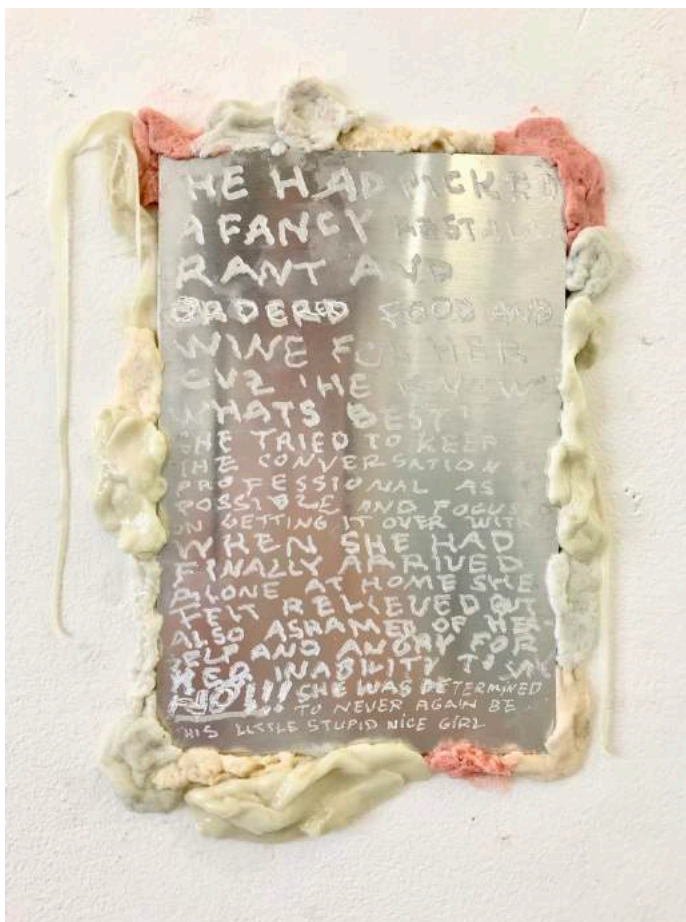 HE HAD PICKED
A FANCY RESTAU
RANT AND
ORDERED FOOD AND
WINE FOR HER
CUZ 'HE KNEW
WHATS BEST'
SHE TRIED TO KEEP
THE CONVERSATION
PROFESSIONAL AS
POSSIBLE AND FOCUS
ON GETTING IT OVER WITH
WHEN SHE HAD
FINALLY ARRIVED
ALONE AT HOME SHE
FELT RELIEVED BUT
ALSO ASHAMED OF HER-
SELF AND ANGRY FOR
HER INABILITY TO SAY
NO!!! SHE WAS DETERMINED
TO NEVER AGAIN BE
THIS LITTLE STUPID NICE GIRL